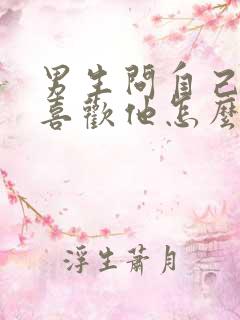 男生問自己
喜歡他怎麼
浮生蕭月